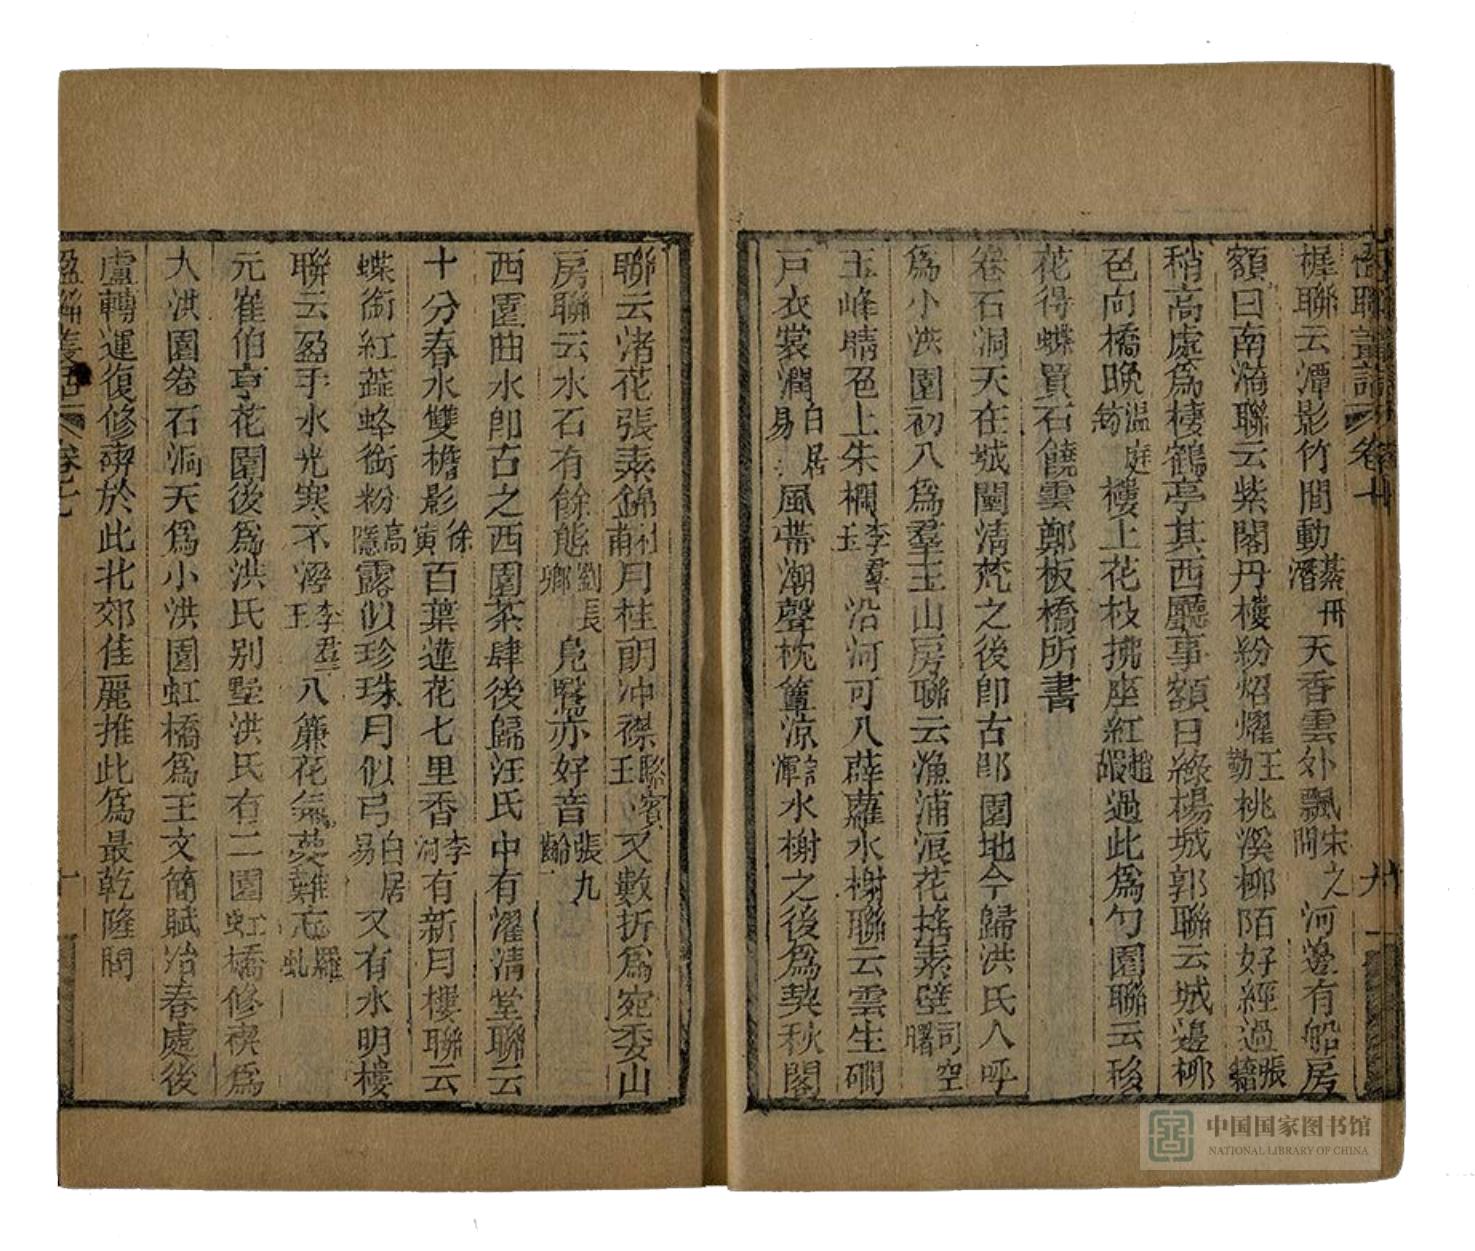 楹聯叢話 卷七 十一
榥聯云潭影竹間動綦毋潛天香雲外飄宋之問河邊有船房
額曰南漪聯云紫閣丹樓紛炤耀王勃桃溪柳陌好經過張籍
稍高處為棲鶴亭其西廳事額曰綠楊城郭聯云城邊柳
色向橋晚溫庭筠樓上花枝拂座紅趙嘏過此為勺園聯云移
花得蝶買石饒雲鄭板橋所書
卷石洞天在城闉清梵之後即古鄖園地今歸洪氏人呼
為小洪園初入為羣玉山房聯云漁浦浪花搖素壁司空曙
玉峰晴色上朱欄李羣玉沿河可入薜蘿水榭聯云雲生磵
戶衣裳潤白居易風帶潮聲枕簟涼許渾水榭之後為契秋閣
聯云渚花張素錦杜甫月桂朗沖襟駱賓王又數折為宛委山
房聯云水石有餘態劉長卿鳧鷖亦好音張九齡
西園曲水即古之西園茶肆後歸汪氏中有濯清堂聯云
十分春水雙檐影徐寅百葉蓮花七里香李洞有新月樓聯云
蝶銜紅蕋蜂銜粉高隱露似珍珠月似弓白居易又有水明樓
聯云盈手水光寒不溼李羣玉入簾花氣靜難忘羅虬
元崔伯亨花園後為洪氏别墅洪氏有二園虹橋修禊為
大洪園卷石洞天為小洪園虹橋為王文簡賦冶春處後
盧轉運復修禊於此北郊佳麗推此為最乾隆間
楹聯叢話 卷七
中国国家图书馆
NATIONAL LIBRARY OF CHINA